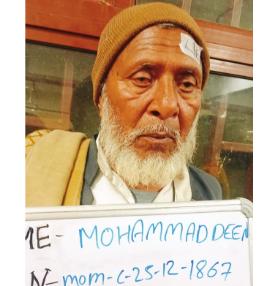 ME- MOHAMMAD DEEN
N- mom-C-25-12-1867